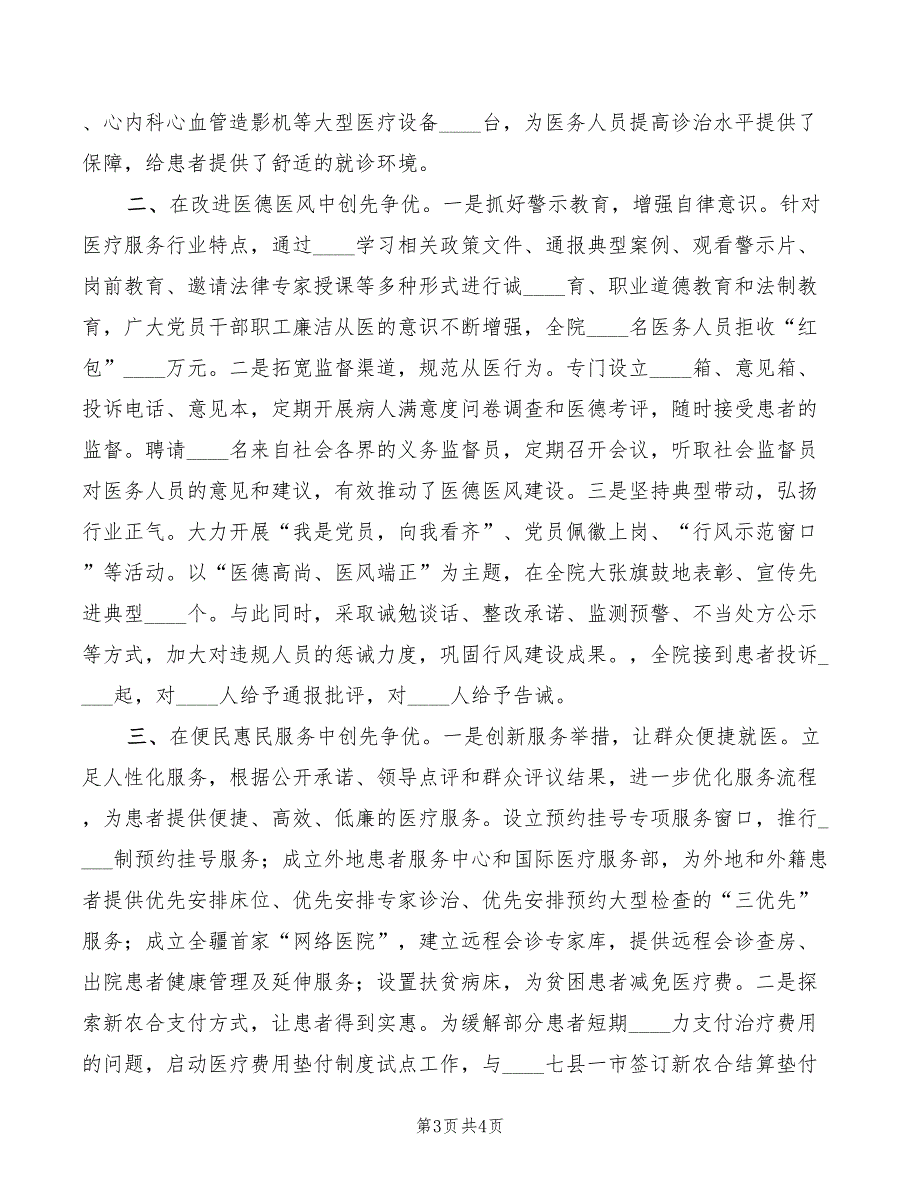 、心内科心血管造影机等大型医疗设备____台，为医务人员提高诊治水平提供了
保障，给患者提供了舒适的就诊环境。
二、在改进医德医风中创先争优。一是抓好警示教育，增强自律意识。针对
医疗服务行业特点，通过____学习相关政策文件、通报典型案例、观看警示片、
岗前教育、邀请法律专家授课等多种形式进行诚____育、职业道德教育和法制教
育，广大党员干部职工廉洁从医的意识不断增强，全院____名医务人员拒收“红
包”____万元。二是拓宽监督渠道，规范从医行为。专门设立____箱、意见箱、
投诉电话、意见本，定期开展病人满意度问卷调查和医德考评，随时接受患者的
监督。聘请____名来自社会各界的义务监督员，定期召开会议，听取社会监督员
对医务人员的意见和建议，有效推动了医德医风建设。三是坚持典型带动，弘扬
行业正气。大力开展“我是党员，向我看齐”、党员佩徽上岗、“行风示范窗口
”等活动。以“医德高尚、医风端正”为主题，在全院大张旗鼓地表彰、宣传先
进典型____个。与此同时，采取诫勉谈话、整改承诺、监测预警、不当处方公示
等方式，加大对违规人员的惩诫力度，巩固行风建设成果。，全院接到患者投诉_
___起，对____人给予通报批评，对____人给予告诫。
三、在便民惠民服务中创先争优。一是创新服务举措，让群众便捷就医。立
足人性化服务，根据公开承诺、领导点评和群众评议结果，进一步优化服务流程
，为患者提供便捷、高效、低廉的医疗服务。设立预约挂号专项服务窗口，推行_
___制预约挂号服务；成立外地患者服务中心和国际医疗服务部，为外地和外籍患
者提供优先安排床位、优先安排专家诊治、优先安排预约大型检查的“三优先”
服务；成立全疆首家“网络医院”，建立远程会诊专家库，提供远程会诊查房、
出院患者健康管理及延伸服务；设置扶贫病床，为贫困患者减免医疗费。二是探
索新农合支付方式，让患者得到实惠。为缓解部分患者短期____力支付治疗费用
的问题，启动医疗费用垫付制度试点工作，与____七县一市签订新农合结算垫付
第3页共4页